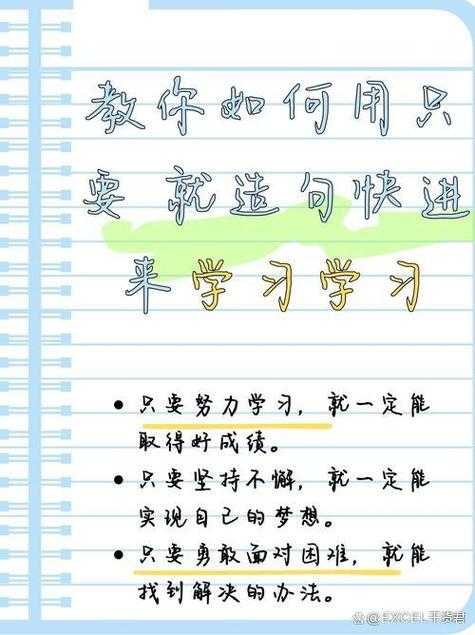 教你如何用只
要 就造句快进
来学习学习
只要努力学习，就一定能
取得好成绩。
只要坚持不懈，就一定能
实现自己的梦想。
只要勇敢面对困难，就能
找到解决的办法。
@EXCEL干货君